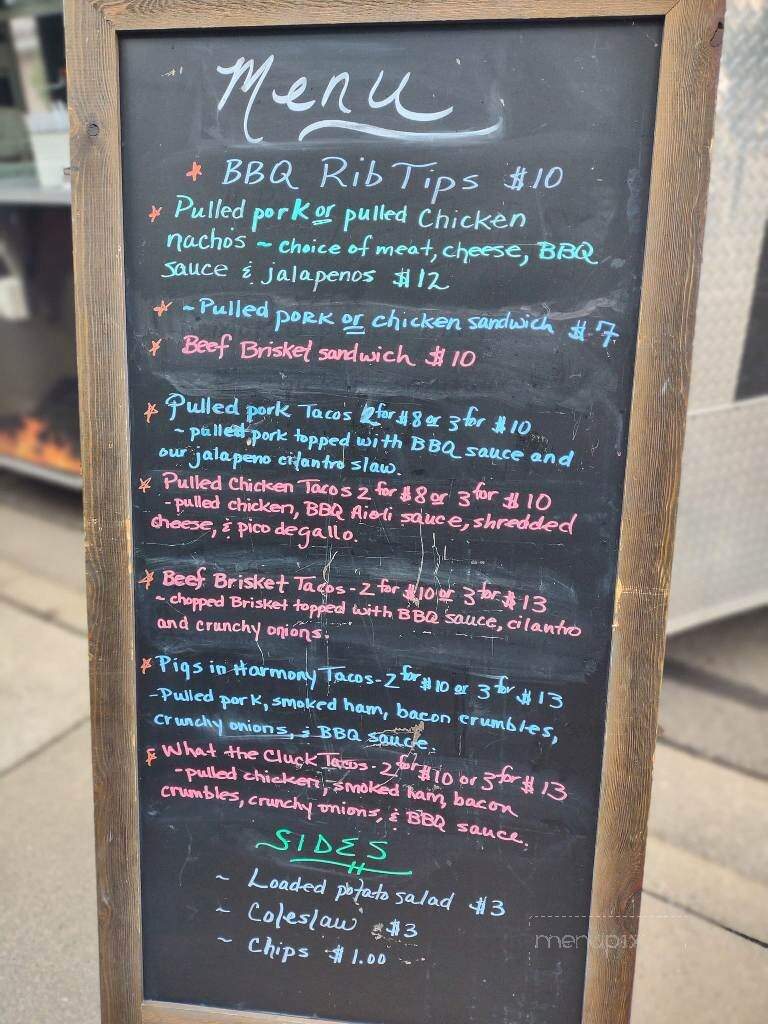 Menu
* BBQ Rib Tips $10
* Pulled pork or pulled Chicken
nachos ~ choice of meat, cheese, BBQ
sauce & jalapenos $12
* ~ Pulled pork or chicken sandwich $7
* Beef Brisket sandwich $10
* Pulled pork Tacos 2 for $8 or 3 for $10
~ pulled pork topped with BBQ sauce and
our jalapeno cilantro slaw.
* Pulled Chicken Tacos 2 for $8 or 3 for $10
- pulled chicken, BBQ Aioli sauce, shredded
cheese, & pico de gallo.
* Beef Brisket Tacos - 2 for $10 or 3 for $13
~ chopped Brisket topped with BBQ sauce, cilantro
and crunchy onions.
* Pigs in Harmony Tacos - 2 for $10 or 3 for $13
- Pulled pork, smoked ham, bacon crumbles,
crunchy onions, & BBQ sauce.
* What the Cluck Tacos - 2 for $10 or 3 for $13
- pulled chicken, smoked ham, bacon
crumbles, crunchy onions, & BBQ sauce.
SIDES
~ Loaded potato salad $3
~ Coleslaw $3
~ Chips $1.00
menupix